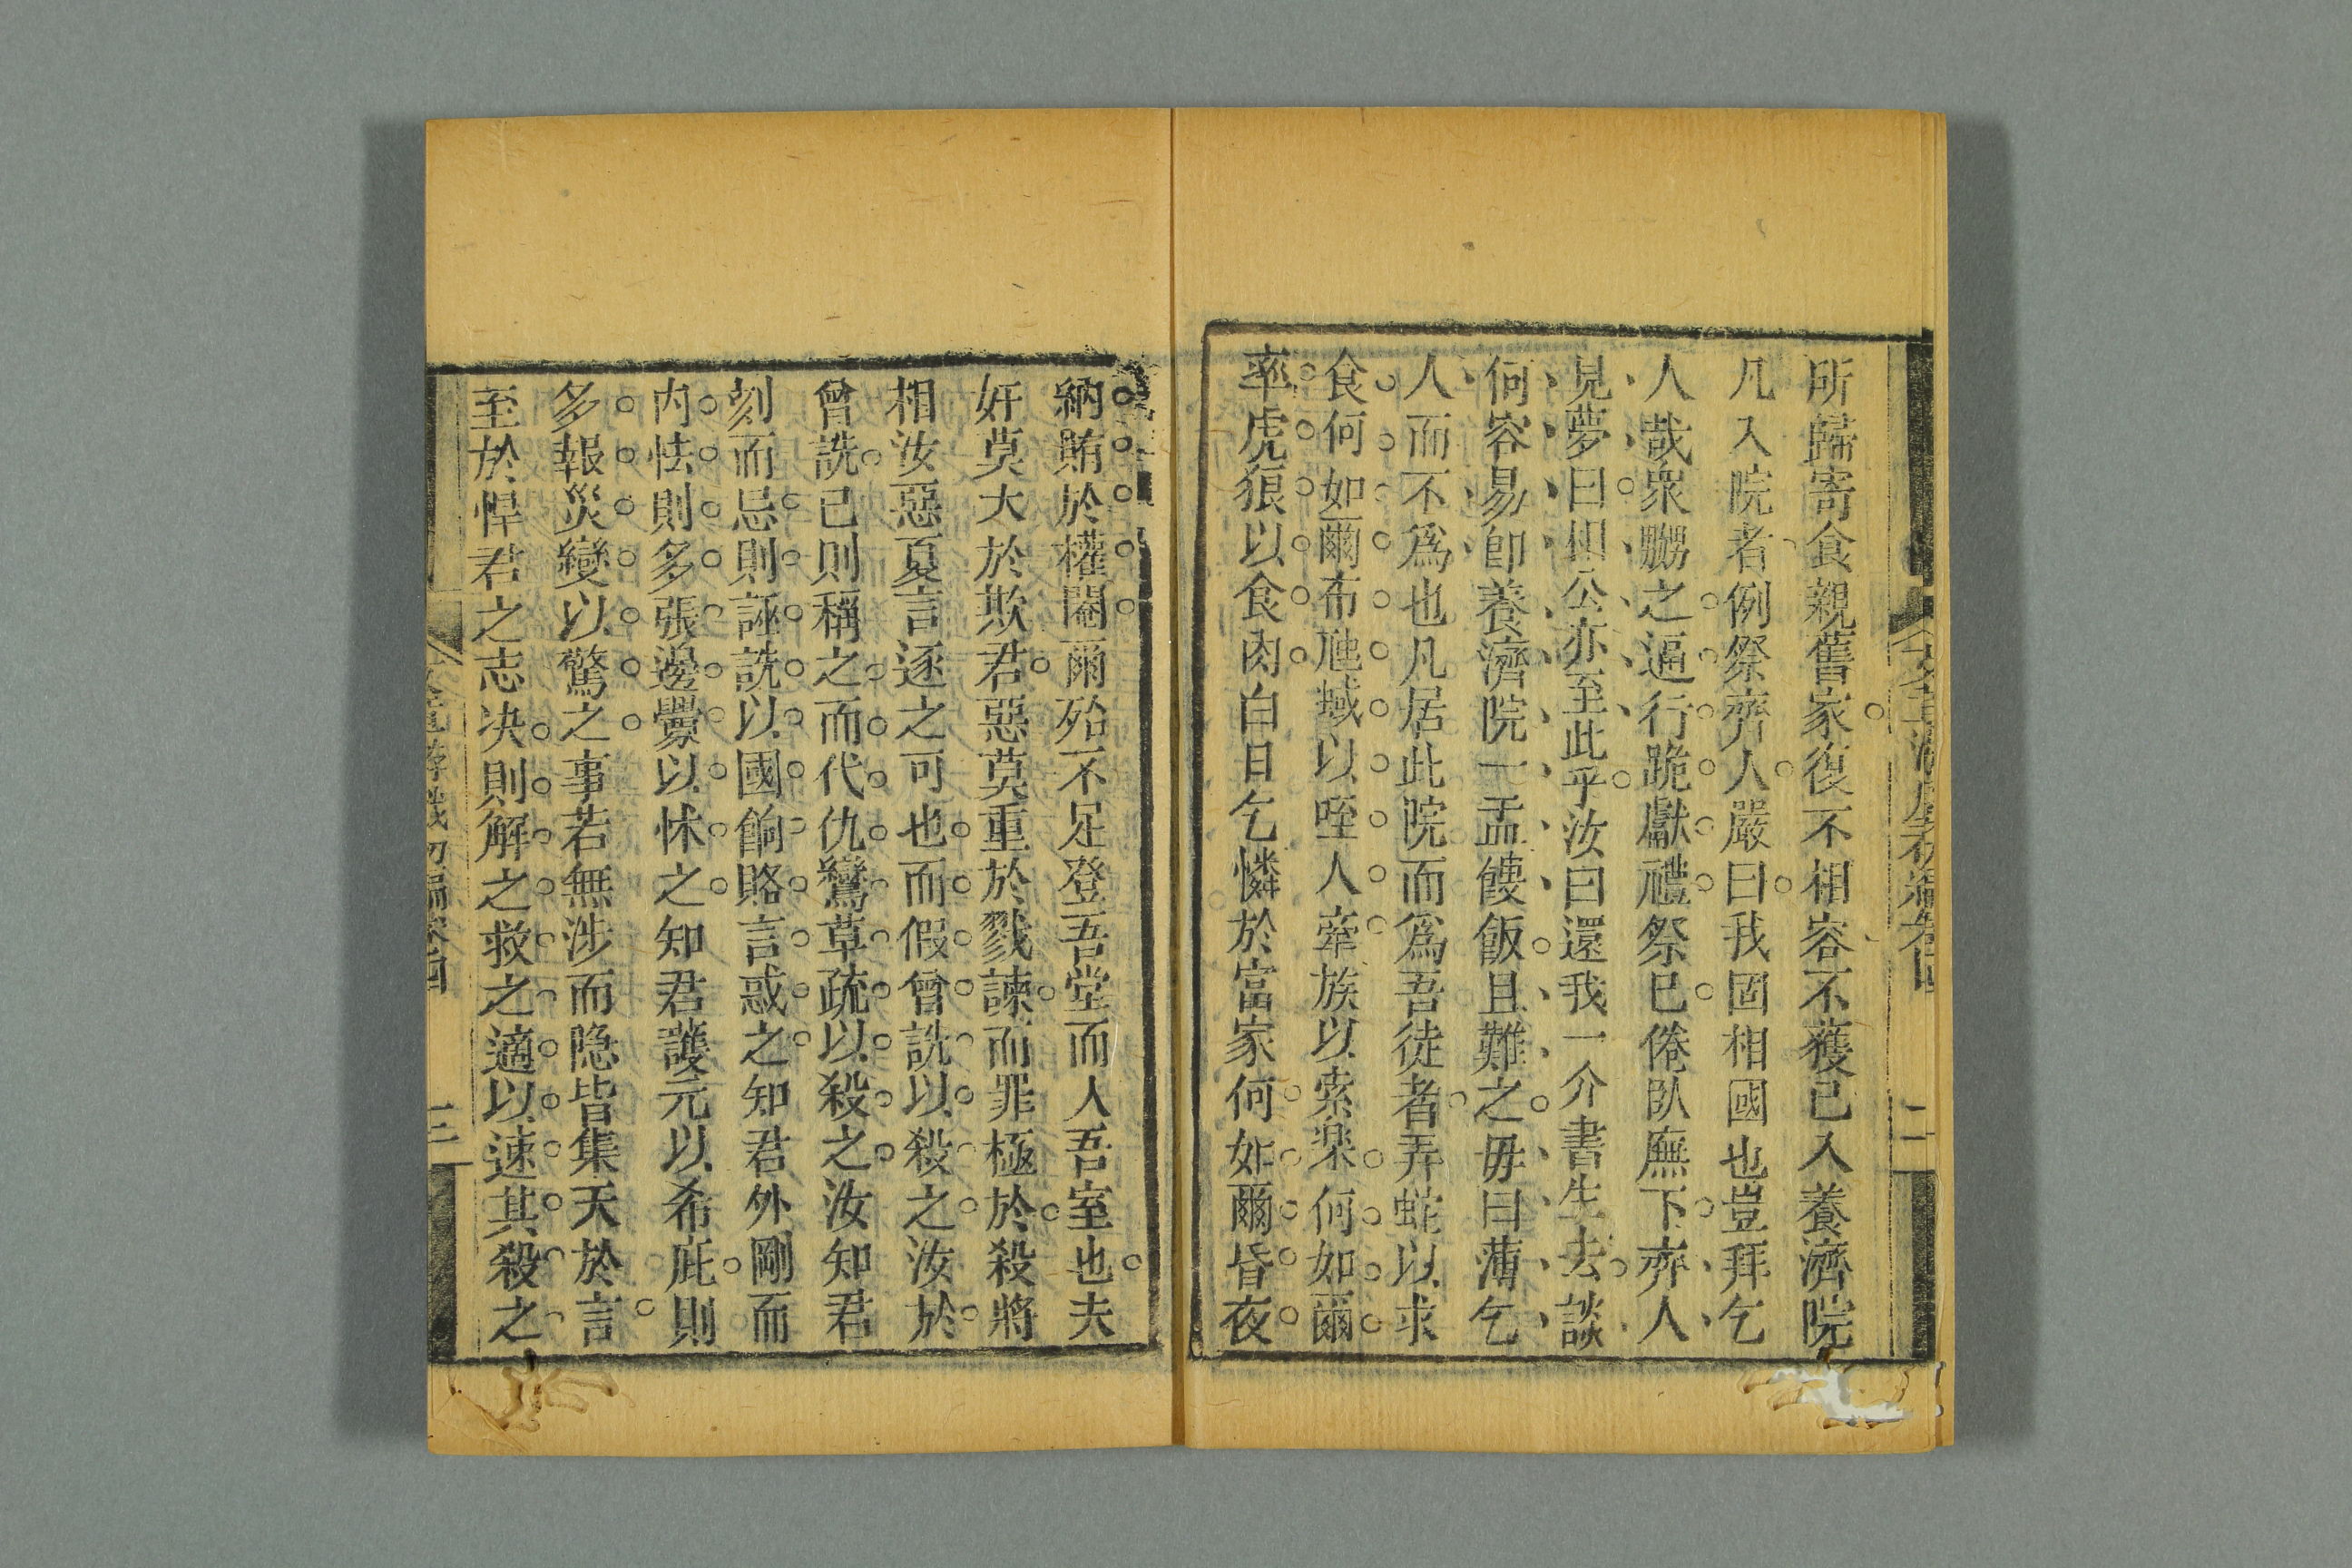 所歸寄食親舊家復不相容不獲已入養濟院
凡入院者例祭齊人嚴曰我固相國也豈拜乞
人哉衆嬲之逼行跪獻禮祭已倦臥廡下齊人
見夢曰相公亦至此乎汝曰還我一介書生去談
何容易卽養濟院一盂餿飯且難之毋曰薄乞
人而不爲也凡居此院而爲吾徒者弄蛇以求
食何如爾布虺蜮以咥人牽族以索樂何如爾
率虎狼以食肉白日乞憐於富家何如爾昏夜
納賄於權閹爾殆不足登吾堂而人吾室也夫
奸莫大於欺君惡莫重於戮諫而罪極於殺將
相汝惡夏言逐之可也而假曾詵以殺之汝於
曾詵已則稱之而代仇鸞草疏以殺之汝知君
刻而忌則誣詵以國餉賂言惑之知君外剛而
內怯則多張邊釁以怵之知君護元以希庇則
多報災變以驚之事若無涉而隐皆集天於言
至於悍君之志决則解之救之適以速其殺之
二
三